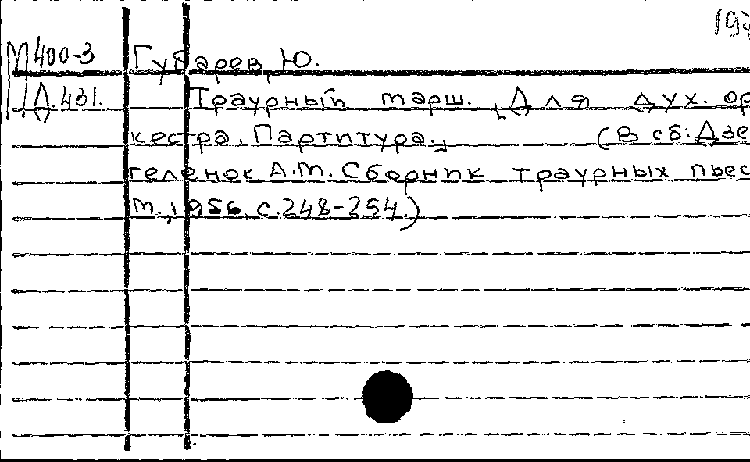 М400-3 Губарев, Ю.
Д.431. Траурный марш. [Для дух. ор
кестра. Партитура.] (В сб: Дзе
геленок А.М. Сборник траурных пьес
М., 1956, с.248-254.)